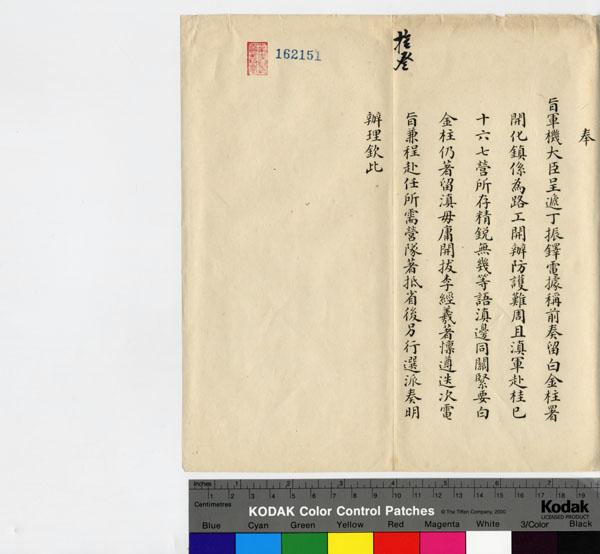 奉
旨軍機大臣呈遞丁振鐸電據稱前奏留白金柱署
開化鎮係為路工開辦防護難周且滇軍赴桂已
十六七營所存精銳無幾等語滇邊同關緊要白
金柱仍著留滇毋庸開拔李經羲著懍遵迭次電
旨兼程赴任所需營隊著抵省後另行選派奏明
辦理欽此
162151
Inches 1 2 3 4 5 6 7
Centimetres 1 2 3 4 5 6 7 8 9 10 11 12 13 14 15 16 17 18 19
KODAK Color Control Patches © The Tiffen Company, 2000 Kodak
LICENSED PRODUCT
Blue Cyan Green Yellow Red Magenta White 3/Color Black